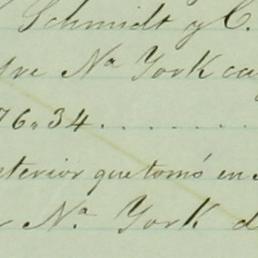 Schmidt y C.
bre Nª York cuy
76.34........
nterior que tomó en
Nª York d